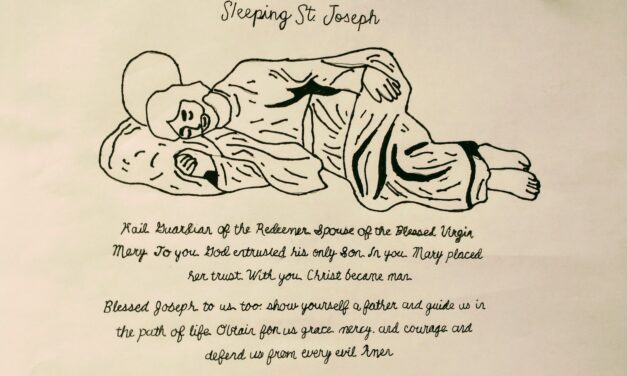 Sleeping St. Joseph
Hail Guardian of the Redeemer Spouse of the Blessed Virgin
Mary To you God entrusted his only Son In you Mary placed
her trust With you Christ became man
Blessed Joseph to us too. show yourself a father and guide us in
the path of life Obtain for us grace mercy. and courage and
defend us from every evil Amen